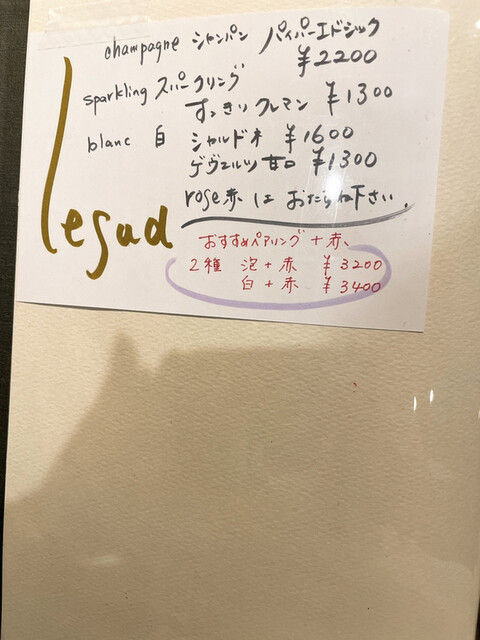 champagne シャンパン パイパーエドシック
¥2200
sparkling スパークリング
すっきりクレマン ¥1300
blanc 白 シャルドネ ¥1600
ゲヴェルツ 甘口 ¥1300
rose赤 は おたずね下さい.
Legud
おすすめペアリング+赤、
2種 泡+赤 ¥3200
白+赤 ¥3400